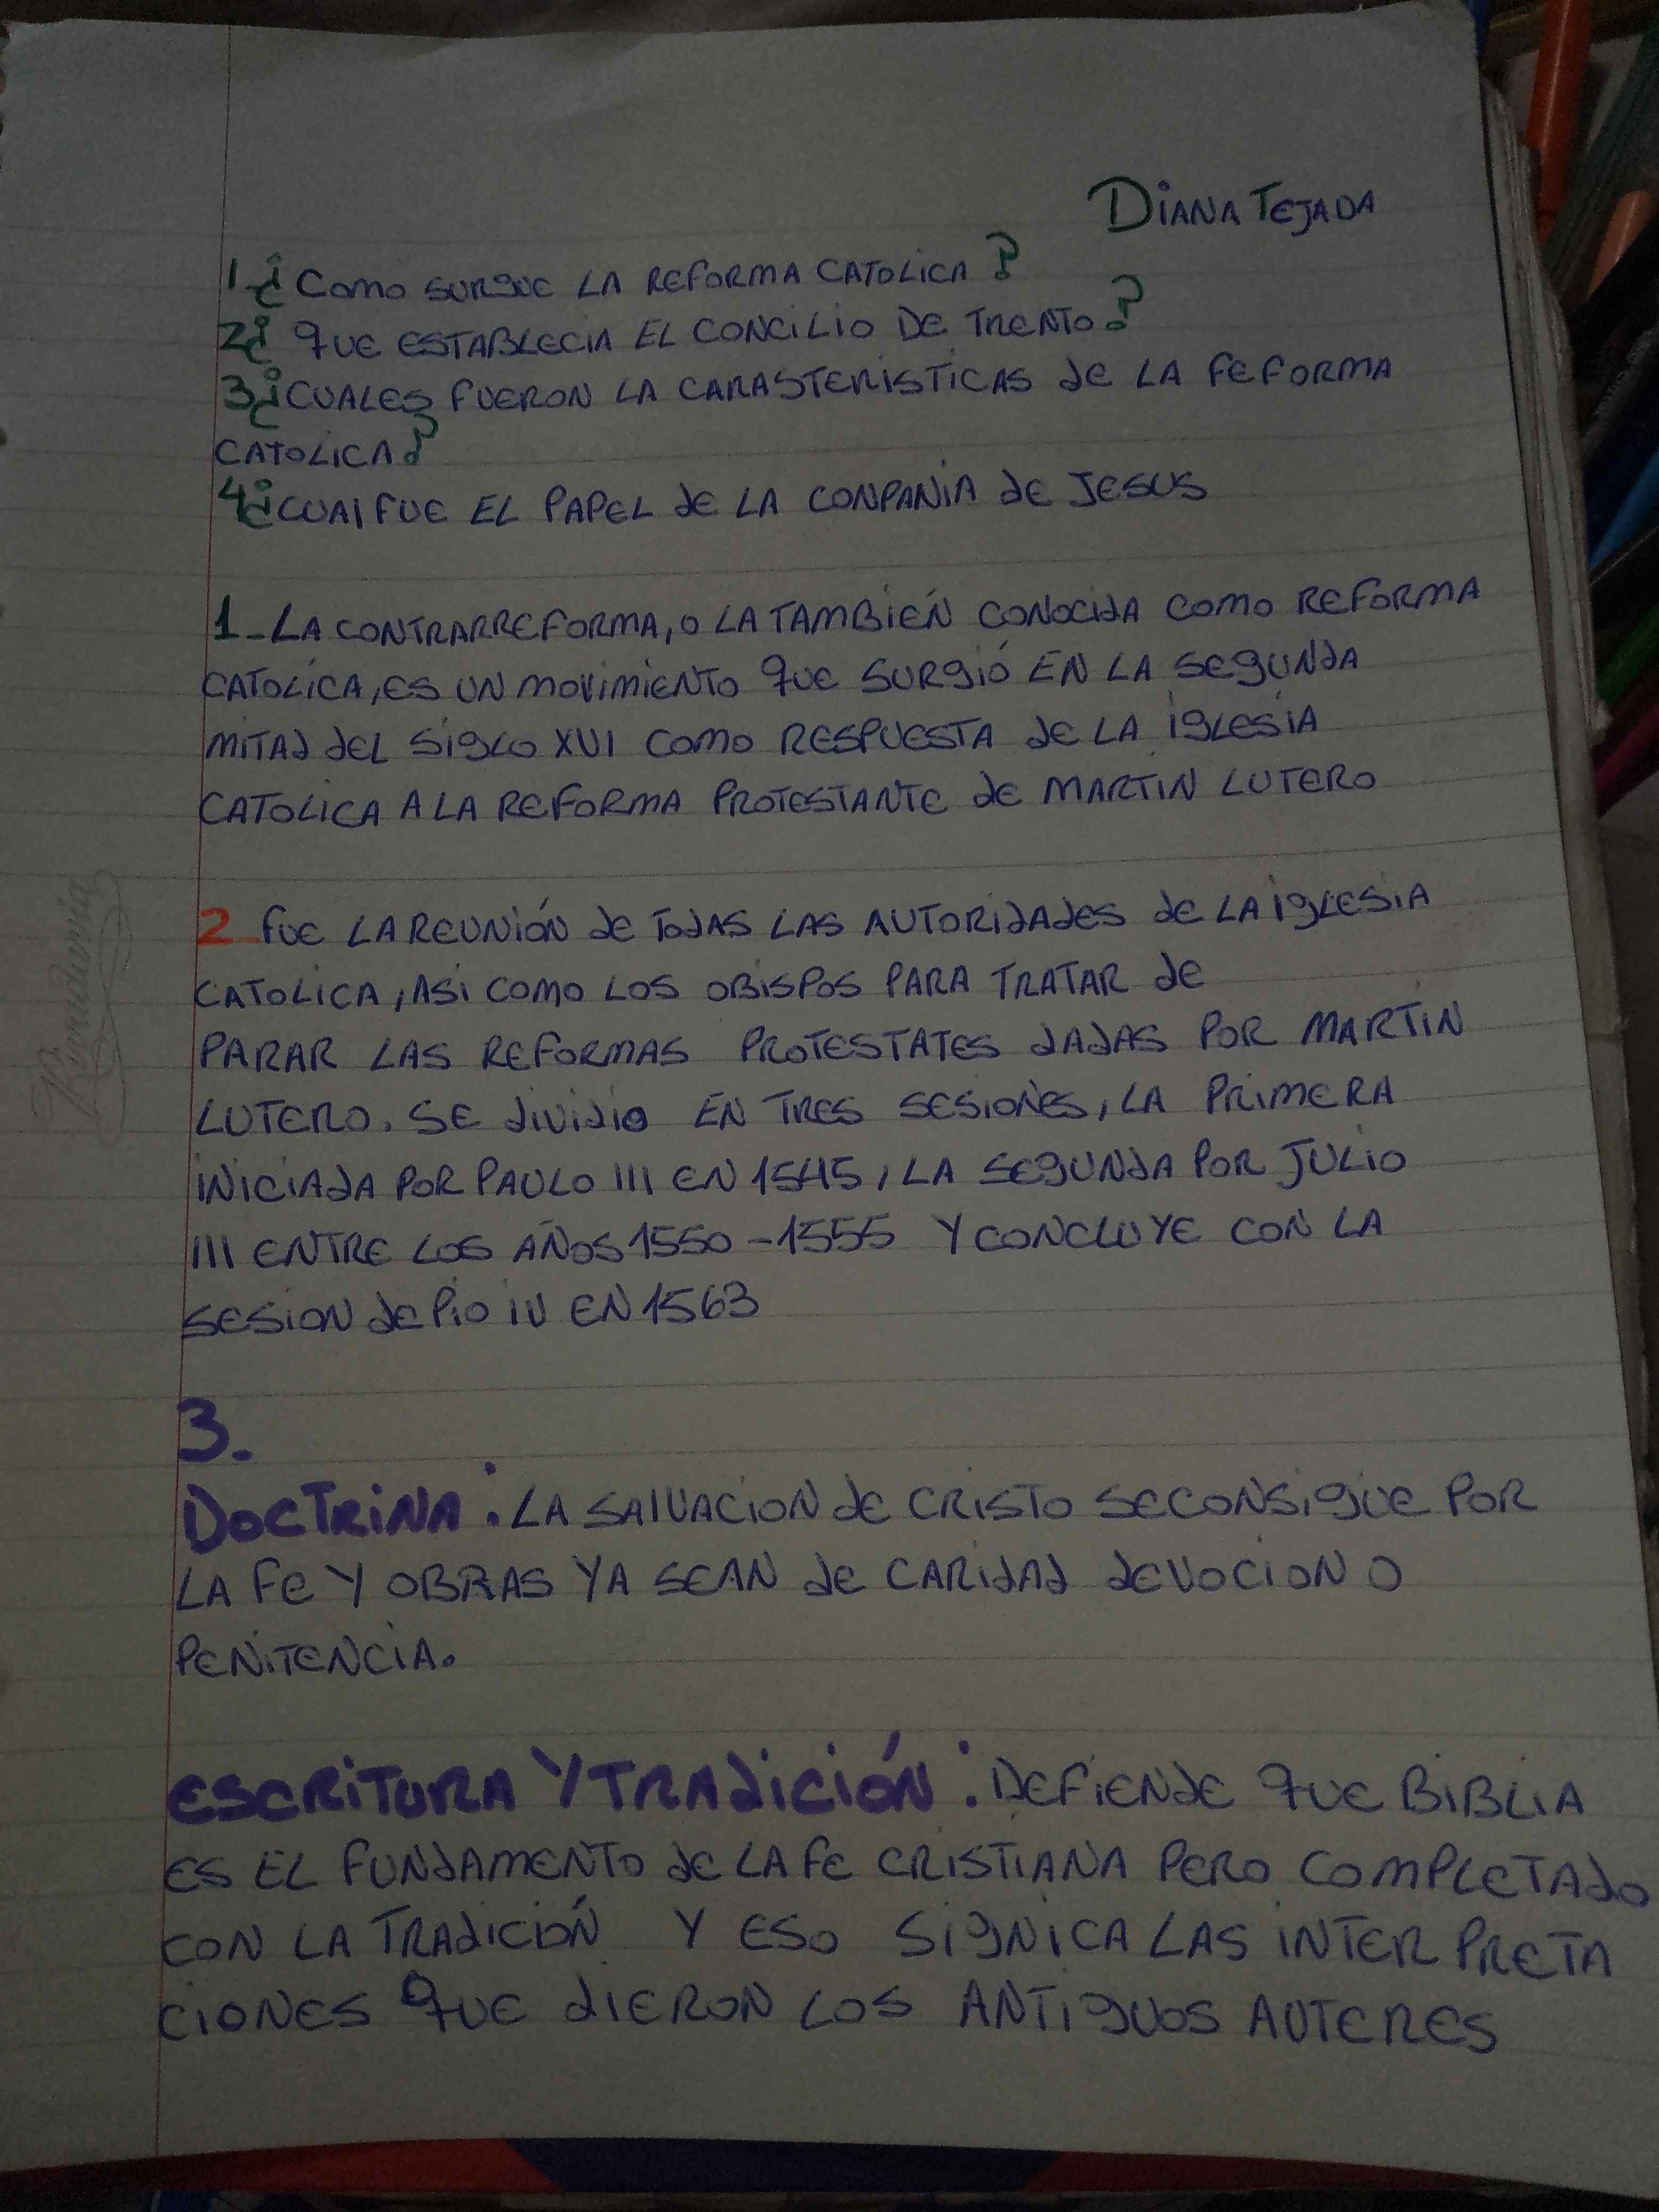 DIANA TEJADA
1¿ Como SURGUE LA REFORMA CATOLICA?
2¿ QUE ESTABLECIA EL CONCILIO DE TRENTO?
3¿CUALES FUERON LA CARASTERISTICAS de LA FEFORMA
CATOLICA?
4¿CUAl FUE EL PAPEL de LA CONPANIA de JESUS
1-LA CONTRARREFORMA, O LA TAMBIÉN CONOCIdA COMO REFORMA
CATOLICA, ES UN MOVIMIENTO QUE SURGIÓ EN LA SEGUNdA
MITAd dEL SIGLO XVI COMO RESPUESTA de LA IGLESIA
CATOLICA A LA REFORMA PROTESTANTE de MARTIN LUTERO
2-FUE LA REUNIÓN de TOdAS LAS AUTORIdAdES de LA IGLESIA
CATOLICA, ASI COMO LOS OBISPOS PARA TRATAR de
PARAR LAS REFORMAS PROTESTATES dAdAS POR MARTIN
LUTERO. SE dIVIdIO EN TRES SESIONES, LA PRIMERA
INICIAdA POR PAULO III EN 1545, LA SEGUNdA POR JULIO
III ENTRE LOS AÑOS 1550-1555 Y CONCLUYE CON LA
SESION de PIO IV EN 1563
3.
DOCTRINA: LA SAlVACION de CRISTO SE CONSIGUE POR
LA FE Y OBRAS YA SEAN de CARIdAd dEVOCION O
PENITENCIA.
ESCRITURA Y TRAdICIÓN: DEFIENdE QUE BIBLIA
ES EL FUNdAMENTO de LA FE CRISTIANA PERO COMPLETAdO
CON LA TRAdICIÓN Y ESO SIGNICA LAS INTERPRETA
CIONES QUE dIERON LOS ANTIGUOS AUTERES